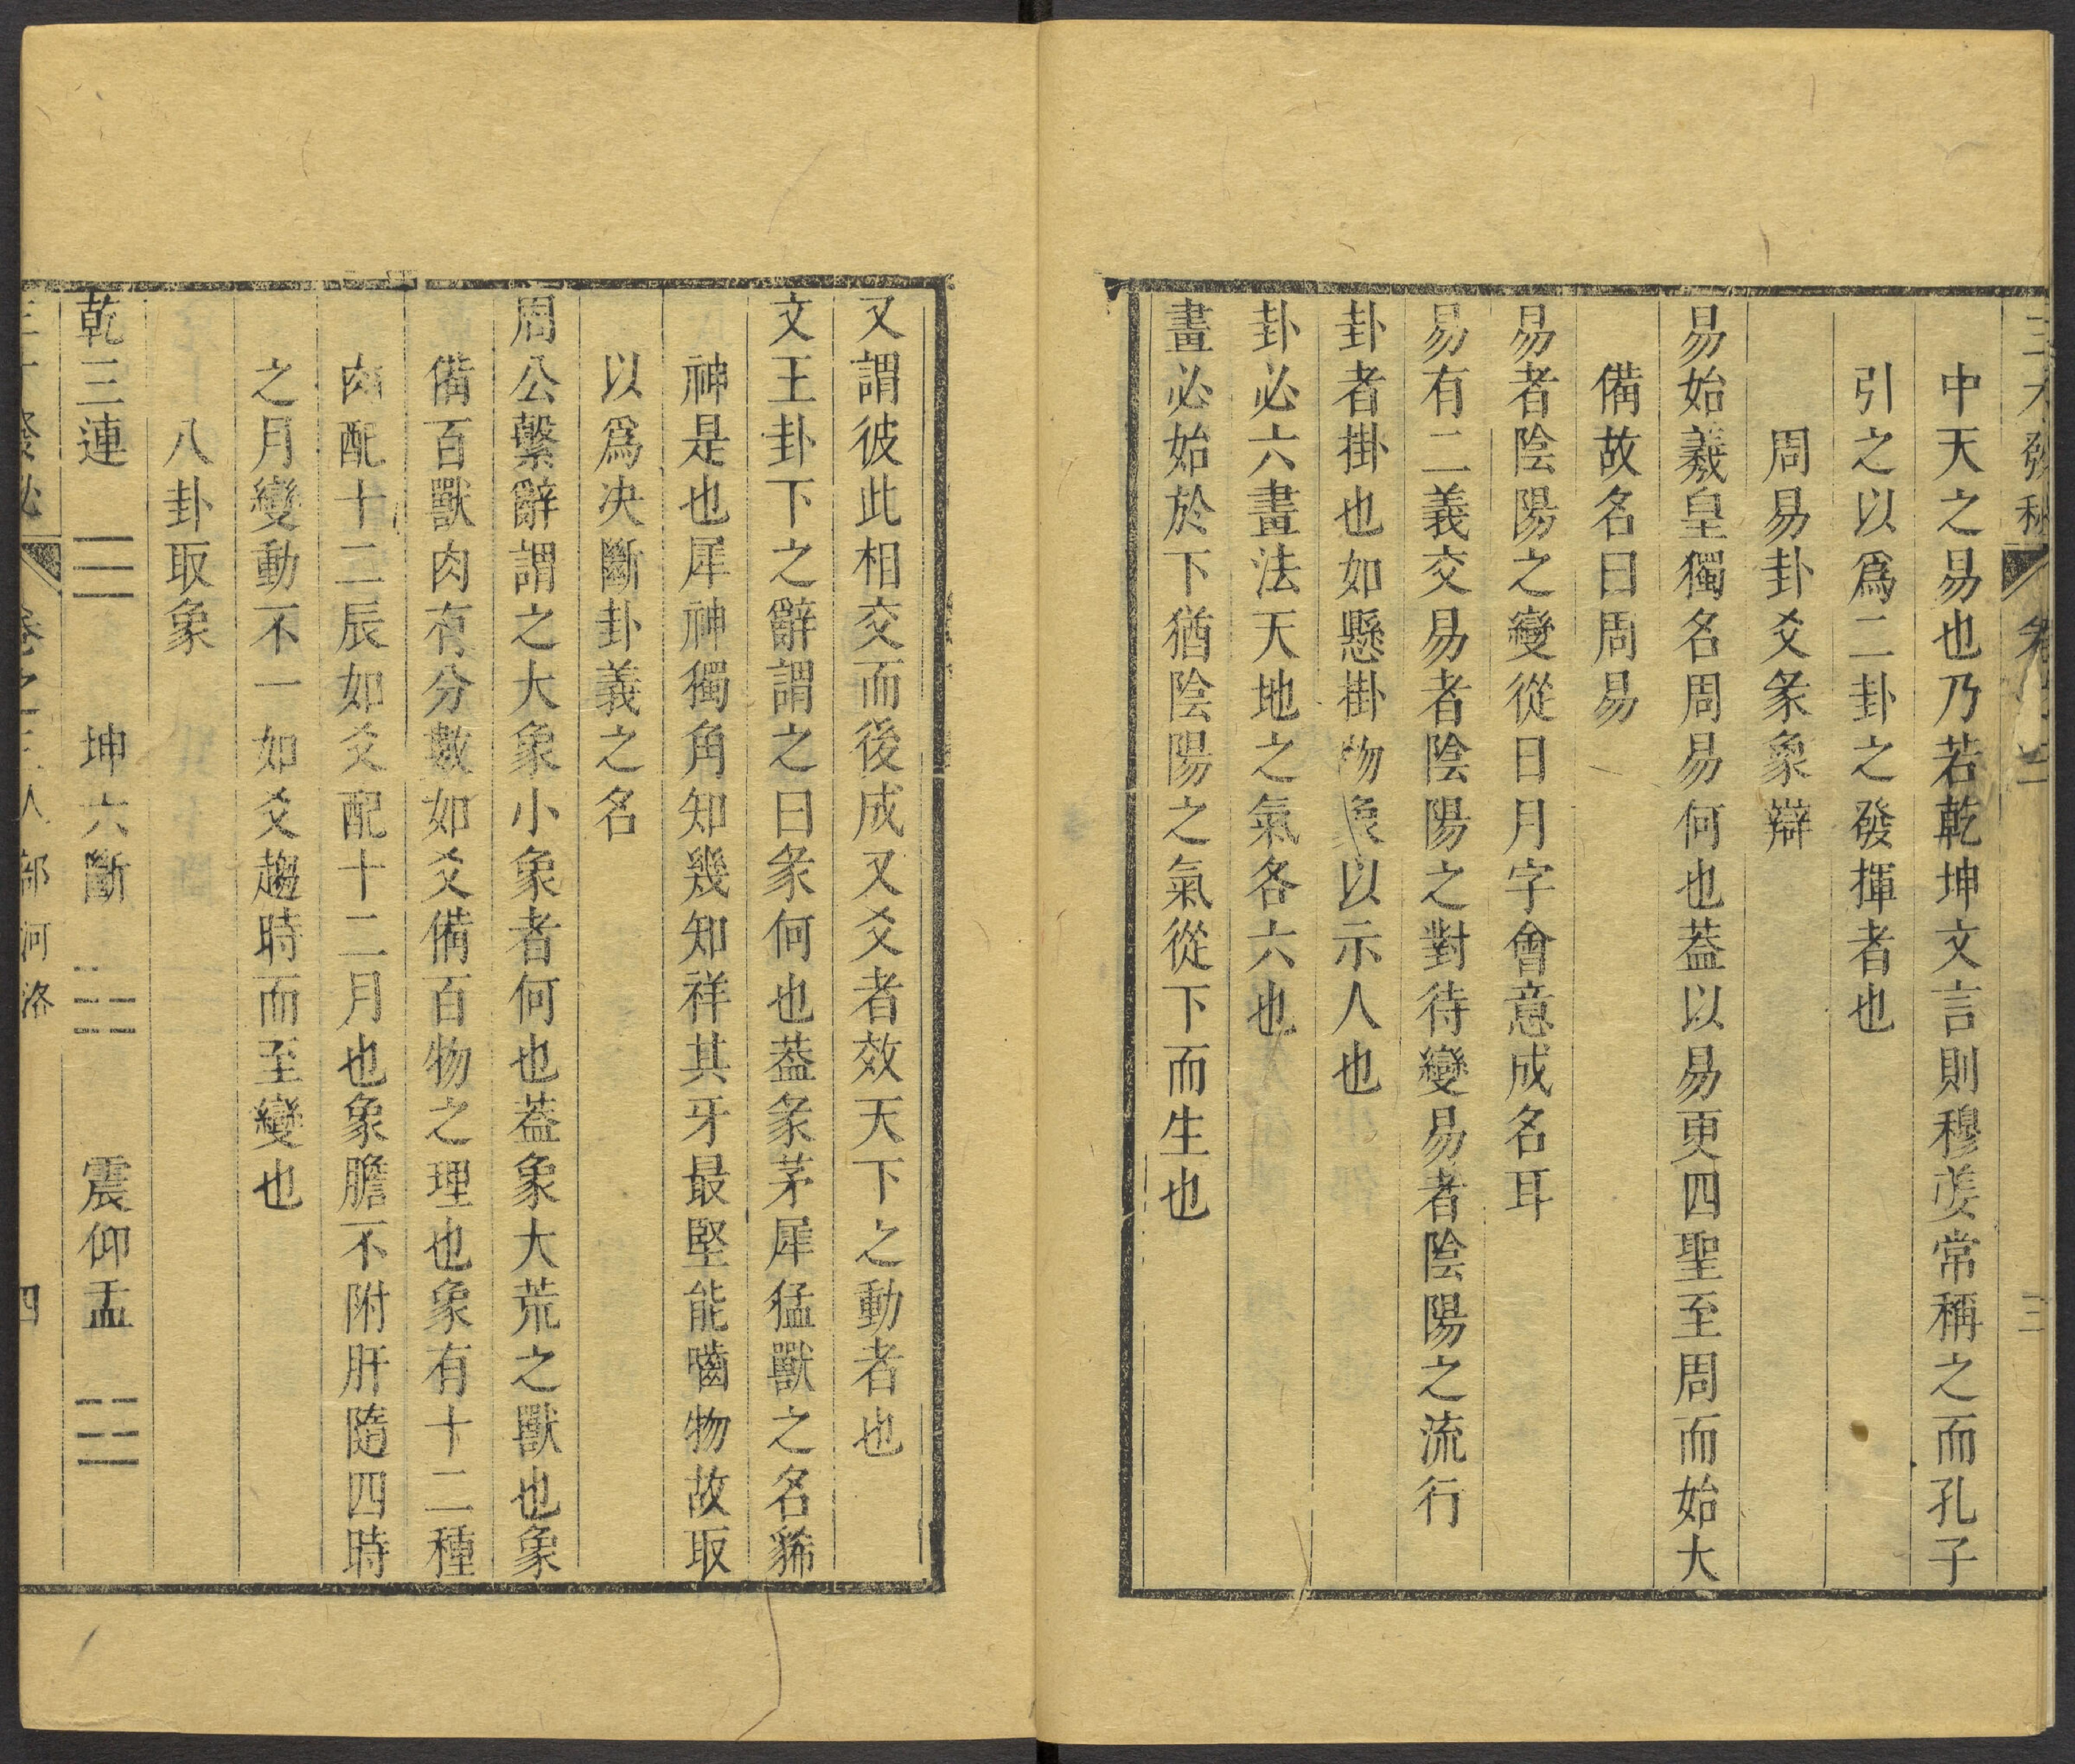 三才發秘 卷 三 三
中天之易也乃若乾坤文言則穆姜常稱之而孔子
引之以爲二卦之發揮者也
周易卦爻彖象辯
易始羲皇獨名周易何也葢以易更四聖至周而始大
備故名曰周易
易者陰陽之變從日月字會意成名耳
易有二義交易者陰陽之對待變易者陰陽之流行
卦者掛也如懸掛物象以示人也
卦必六畫法天地之氣各六也
畫必始於下猶陰陽之氣從下而生也
又謂彼此相交而後成又爻者效天下之動者也
文王卦下之辭謂之曰彖何也葢彖茅犀猛獸之名豨
神是也犀神獨角知幾知祥其牙最堅能嚙物故取
以爲决斷卦義之名
周公繫辭謂之大象小象者何也葢象大荒之獸也象
備百獸肉有分數如爻備百物之理也象有十二種
肉配十二辰如爻配十二月也象膽不附肝隨四時
之月變動不一如爻趨時而至變也
八卦取象
乾三連 ☰ 坤六斷 ☷ 震仰盂 ☳
三才發秘 卷之三人部河洛 四